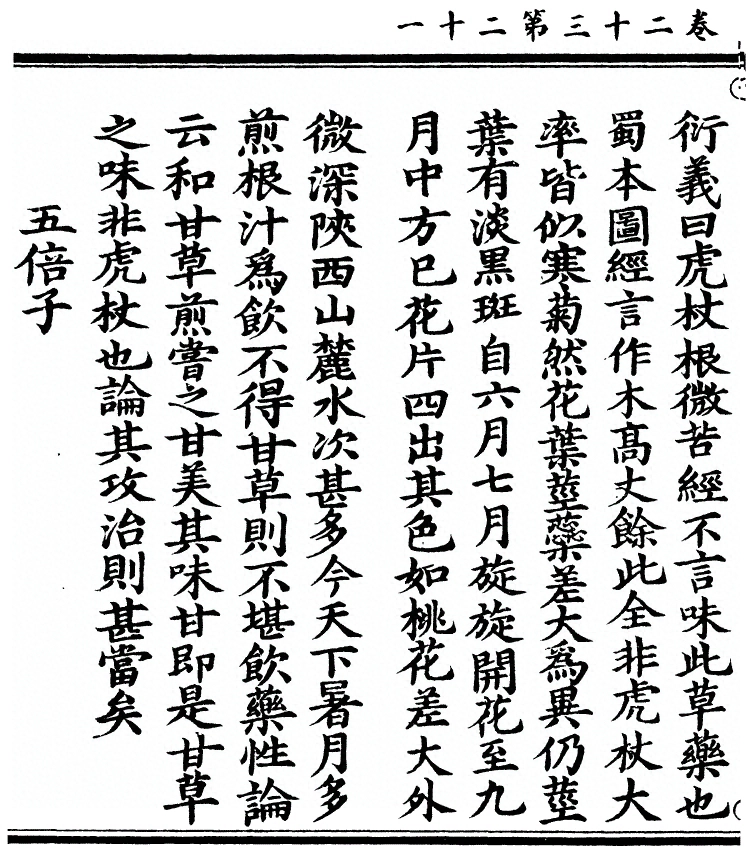 卷二十三第二十一
衍義曰虎杖根微苦經不言味此草藥也
蜀本圖經言作木高丈餘此全非虎杖大
率皆似寒菊然花葉莖蘂差大爲異仍莖
葉有淡黒斑自六月七月旋旋開花至九
月中方已花片四出其色如桃花差大外
微深陝西山麓水次甚多今天下暑月多
煎根汁爲飲不得甘草則不堪飲藥性論
云和甘草煎嘗之甘美其味甘即是甘草
之味非虎杖也論其攻治則甚當矣
五倍子